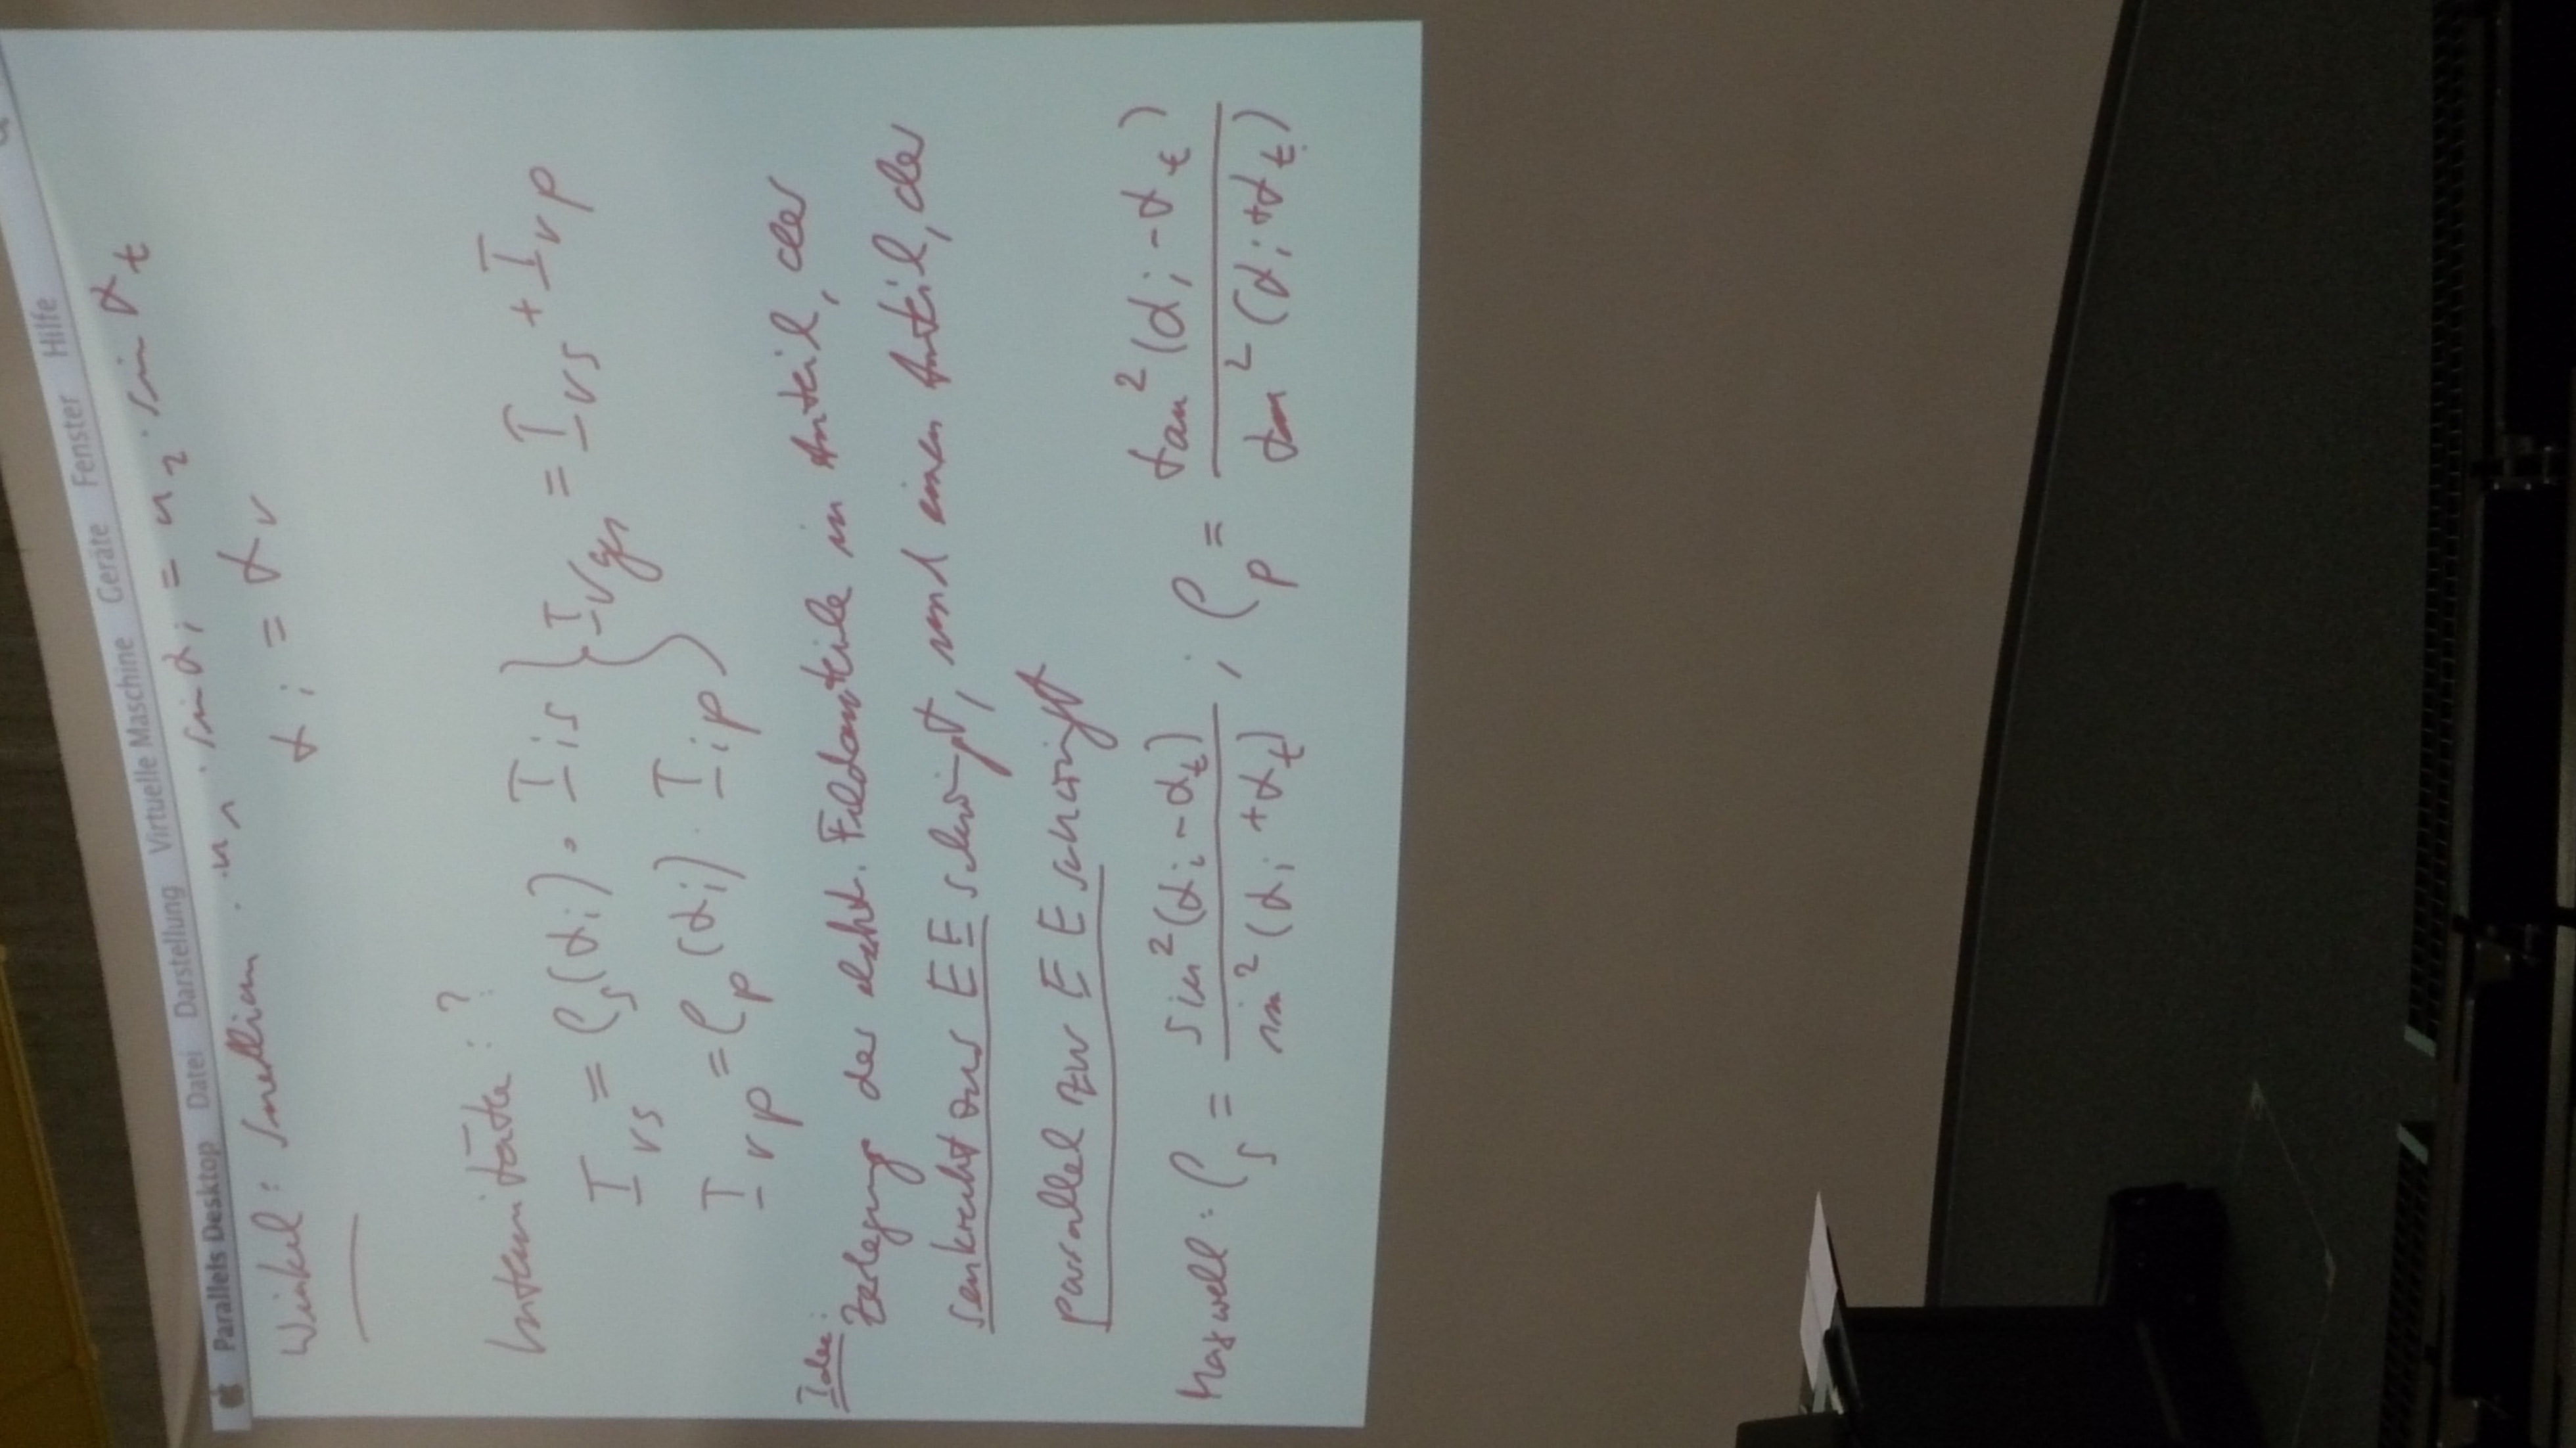 Parallels Desktop Datei Darstellung Virtuelle Maschine Geräte Fenster Hilfe
Winkel: Snellius: n₁ · sin αᵢ = n₂ · sin αₜ
αᵢ = αᵣ
Intensität: ?
I_rs = ρ_s(αᵢ) · I_is } I_rges = I_rs + I_rp
I_rp = ρ_p(αᵢ) · I_ip
Idee:
Zerlegung der elektr. Feldanteile in Anteil, der
senkrecht zur EE schwingt, und einen Anteil, der
parallel zur EE schwingt
Maxwell: ρ_s = sin²(αᵢ - αₜ) / sin²(αᵢ + αₜ) ; ρ_p = tan²(αᵢ - αₜ) / tan²(αᵢ + αₜ)